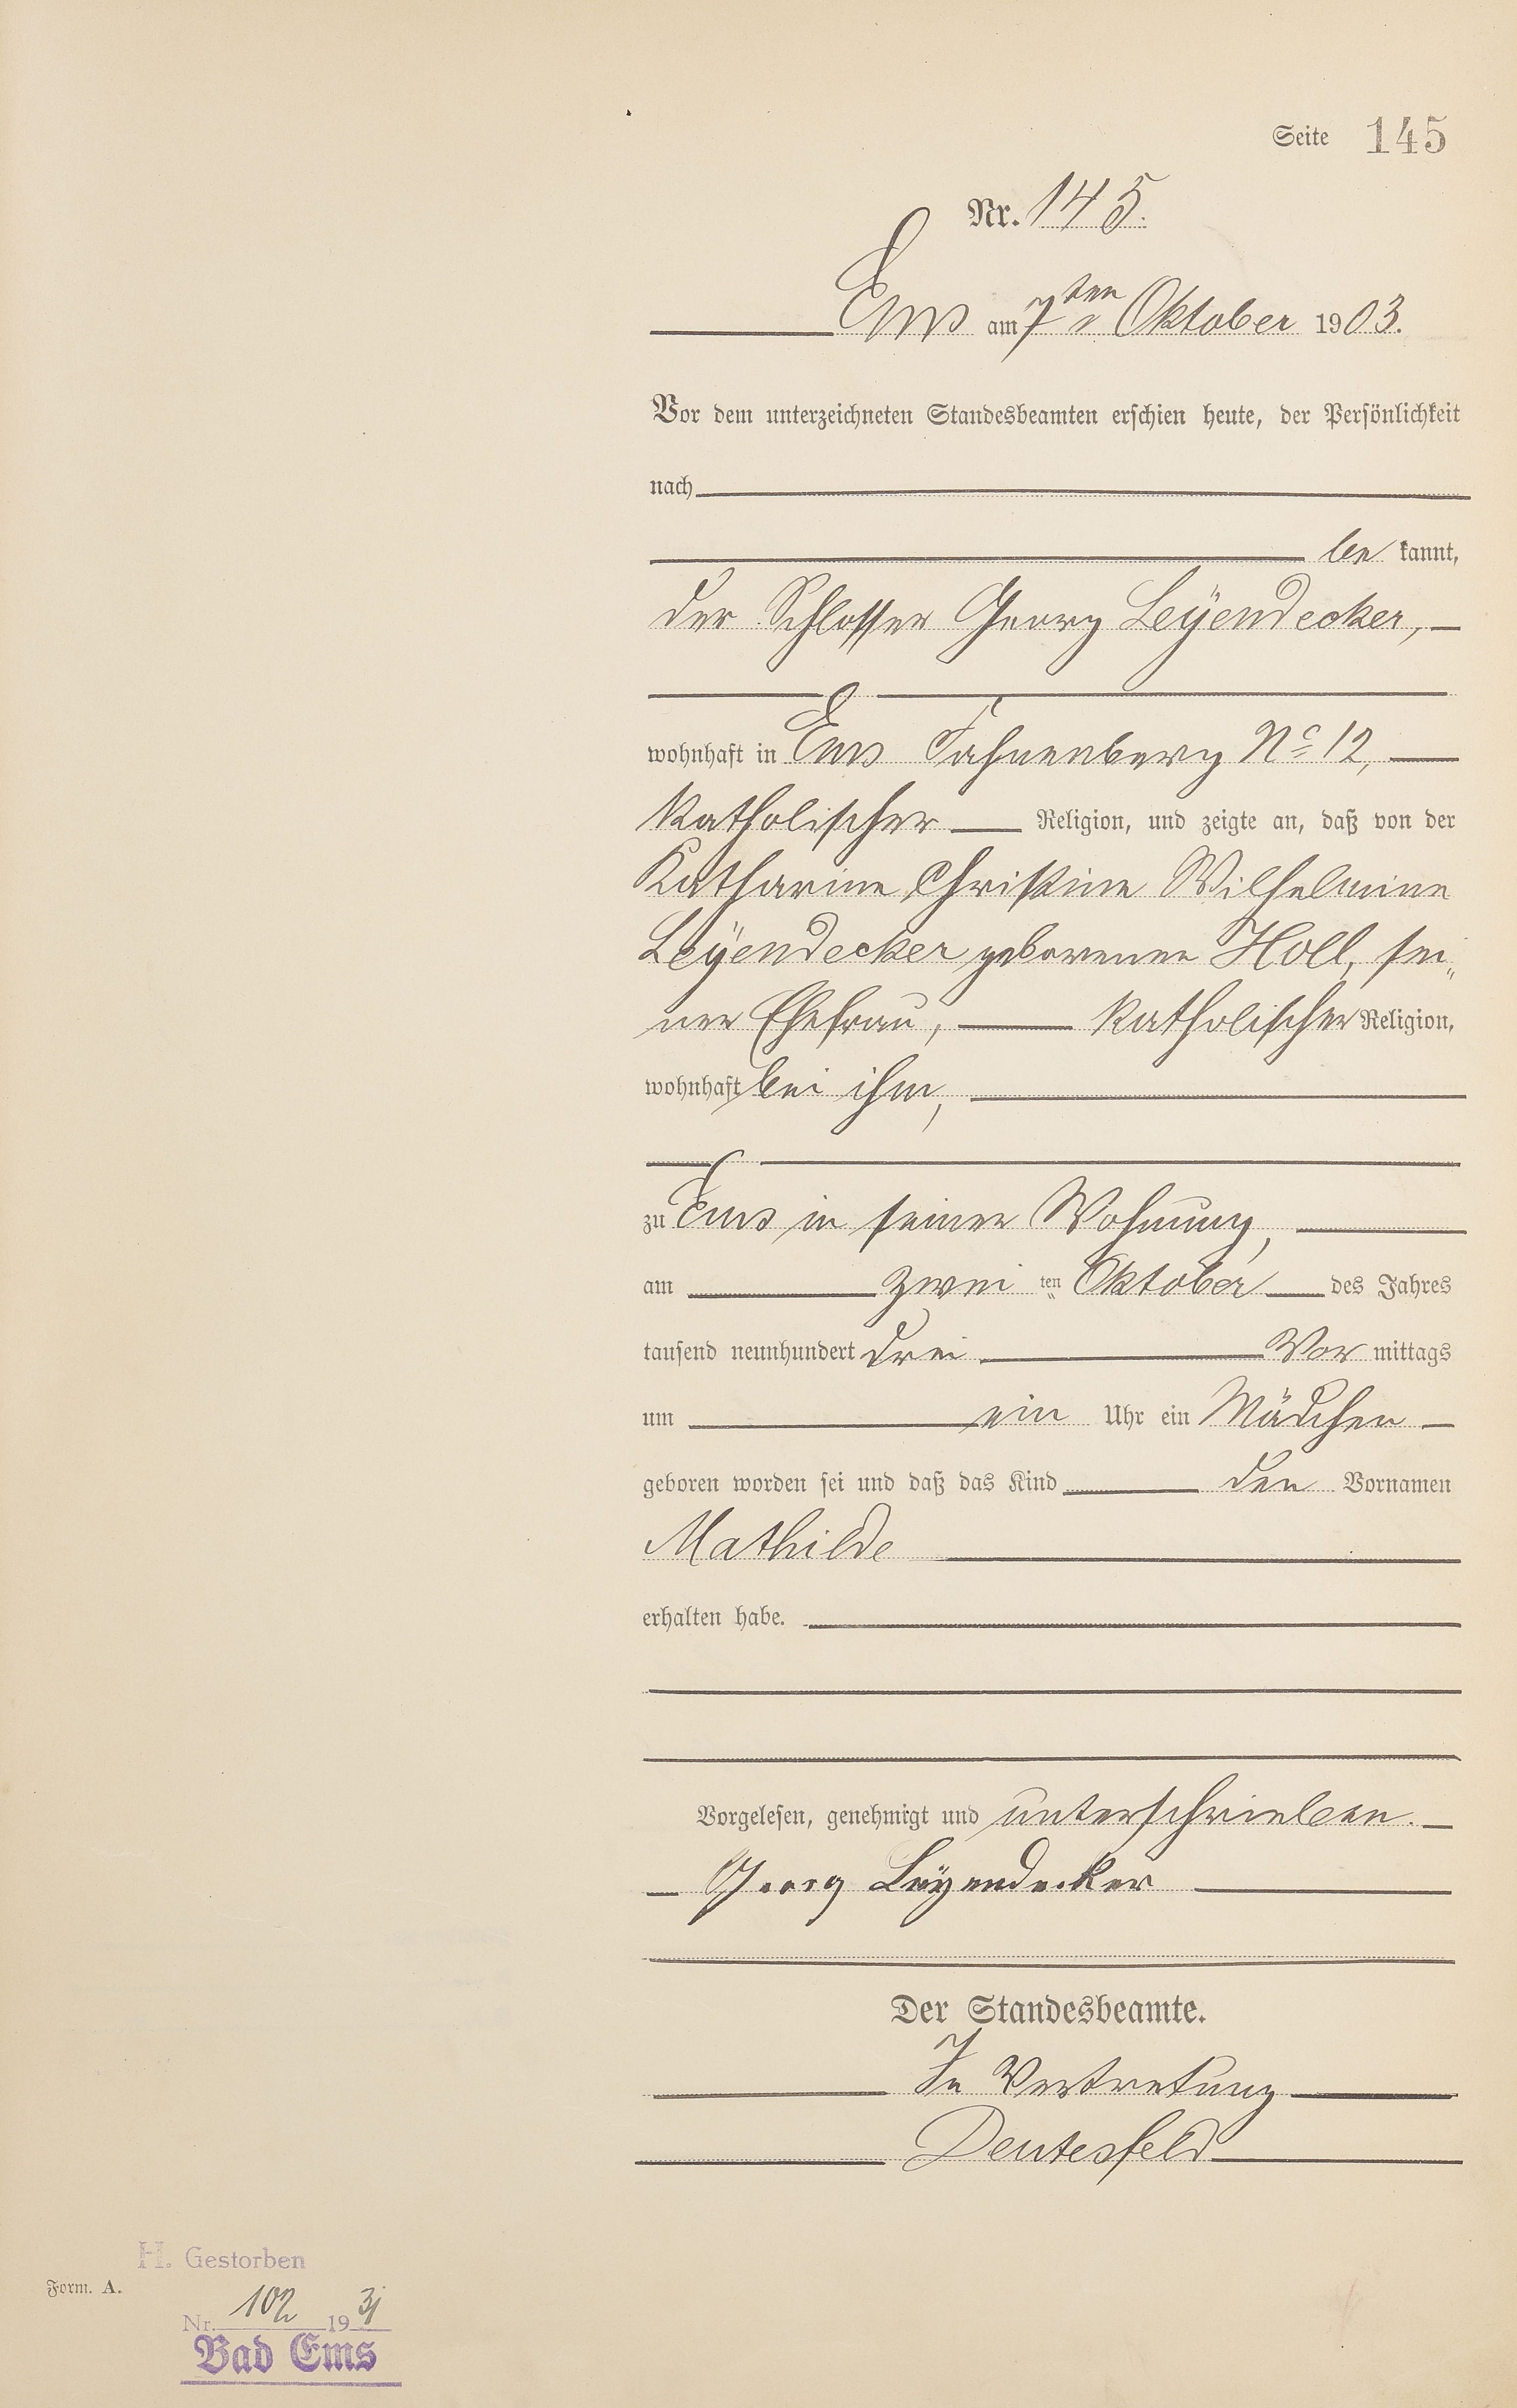 Seite 145
Nr. 145.
Ems am 7ten Oktober 1903.
Vor dem unterzeichneten Standesbeamten erschien heute, der Persönlichkeit
nach
be kannt,
der Schlosser Georg Leÿendecker,
wohnhaft in Ems Fahnenberg No 12,
katholischer Religion, und zeigte an, daß von der
Katharine Christine Wilhelmine
Leÿendecker geborenen Holl, sei„
ner Ehefrau, katholischer Religion,
wohnhaft bei ihm,
zu Ems in seiner Wohnung,
am zwei ten Oktober des Jahres
tausend neunhundert drei Vor mittags
um ein Uhr ein Mädchen
geboren worden sei und daß das Kind den Vornamen
Mathilde
erhalten habe.
Vorgelesen, genehmigt und unterschrieben.
Georg Leÿendecker
Der Standesbeamte.
In Vertretung
Deutesfeld
H. Gestorben
Form. A.
Nr. 102 1931
Bad Ems